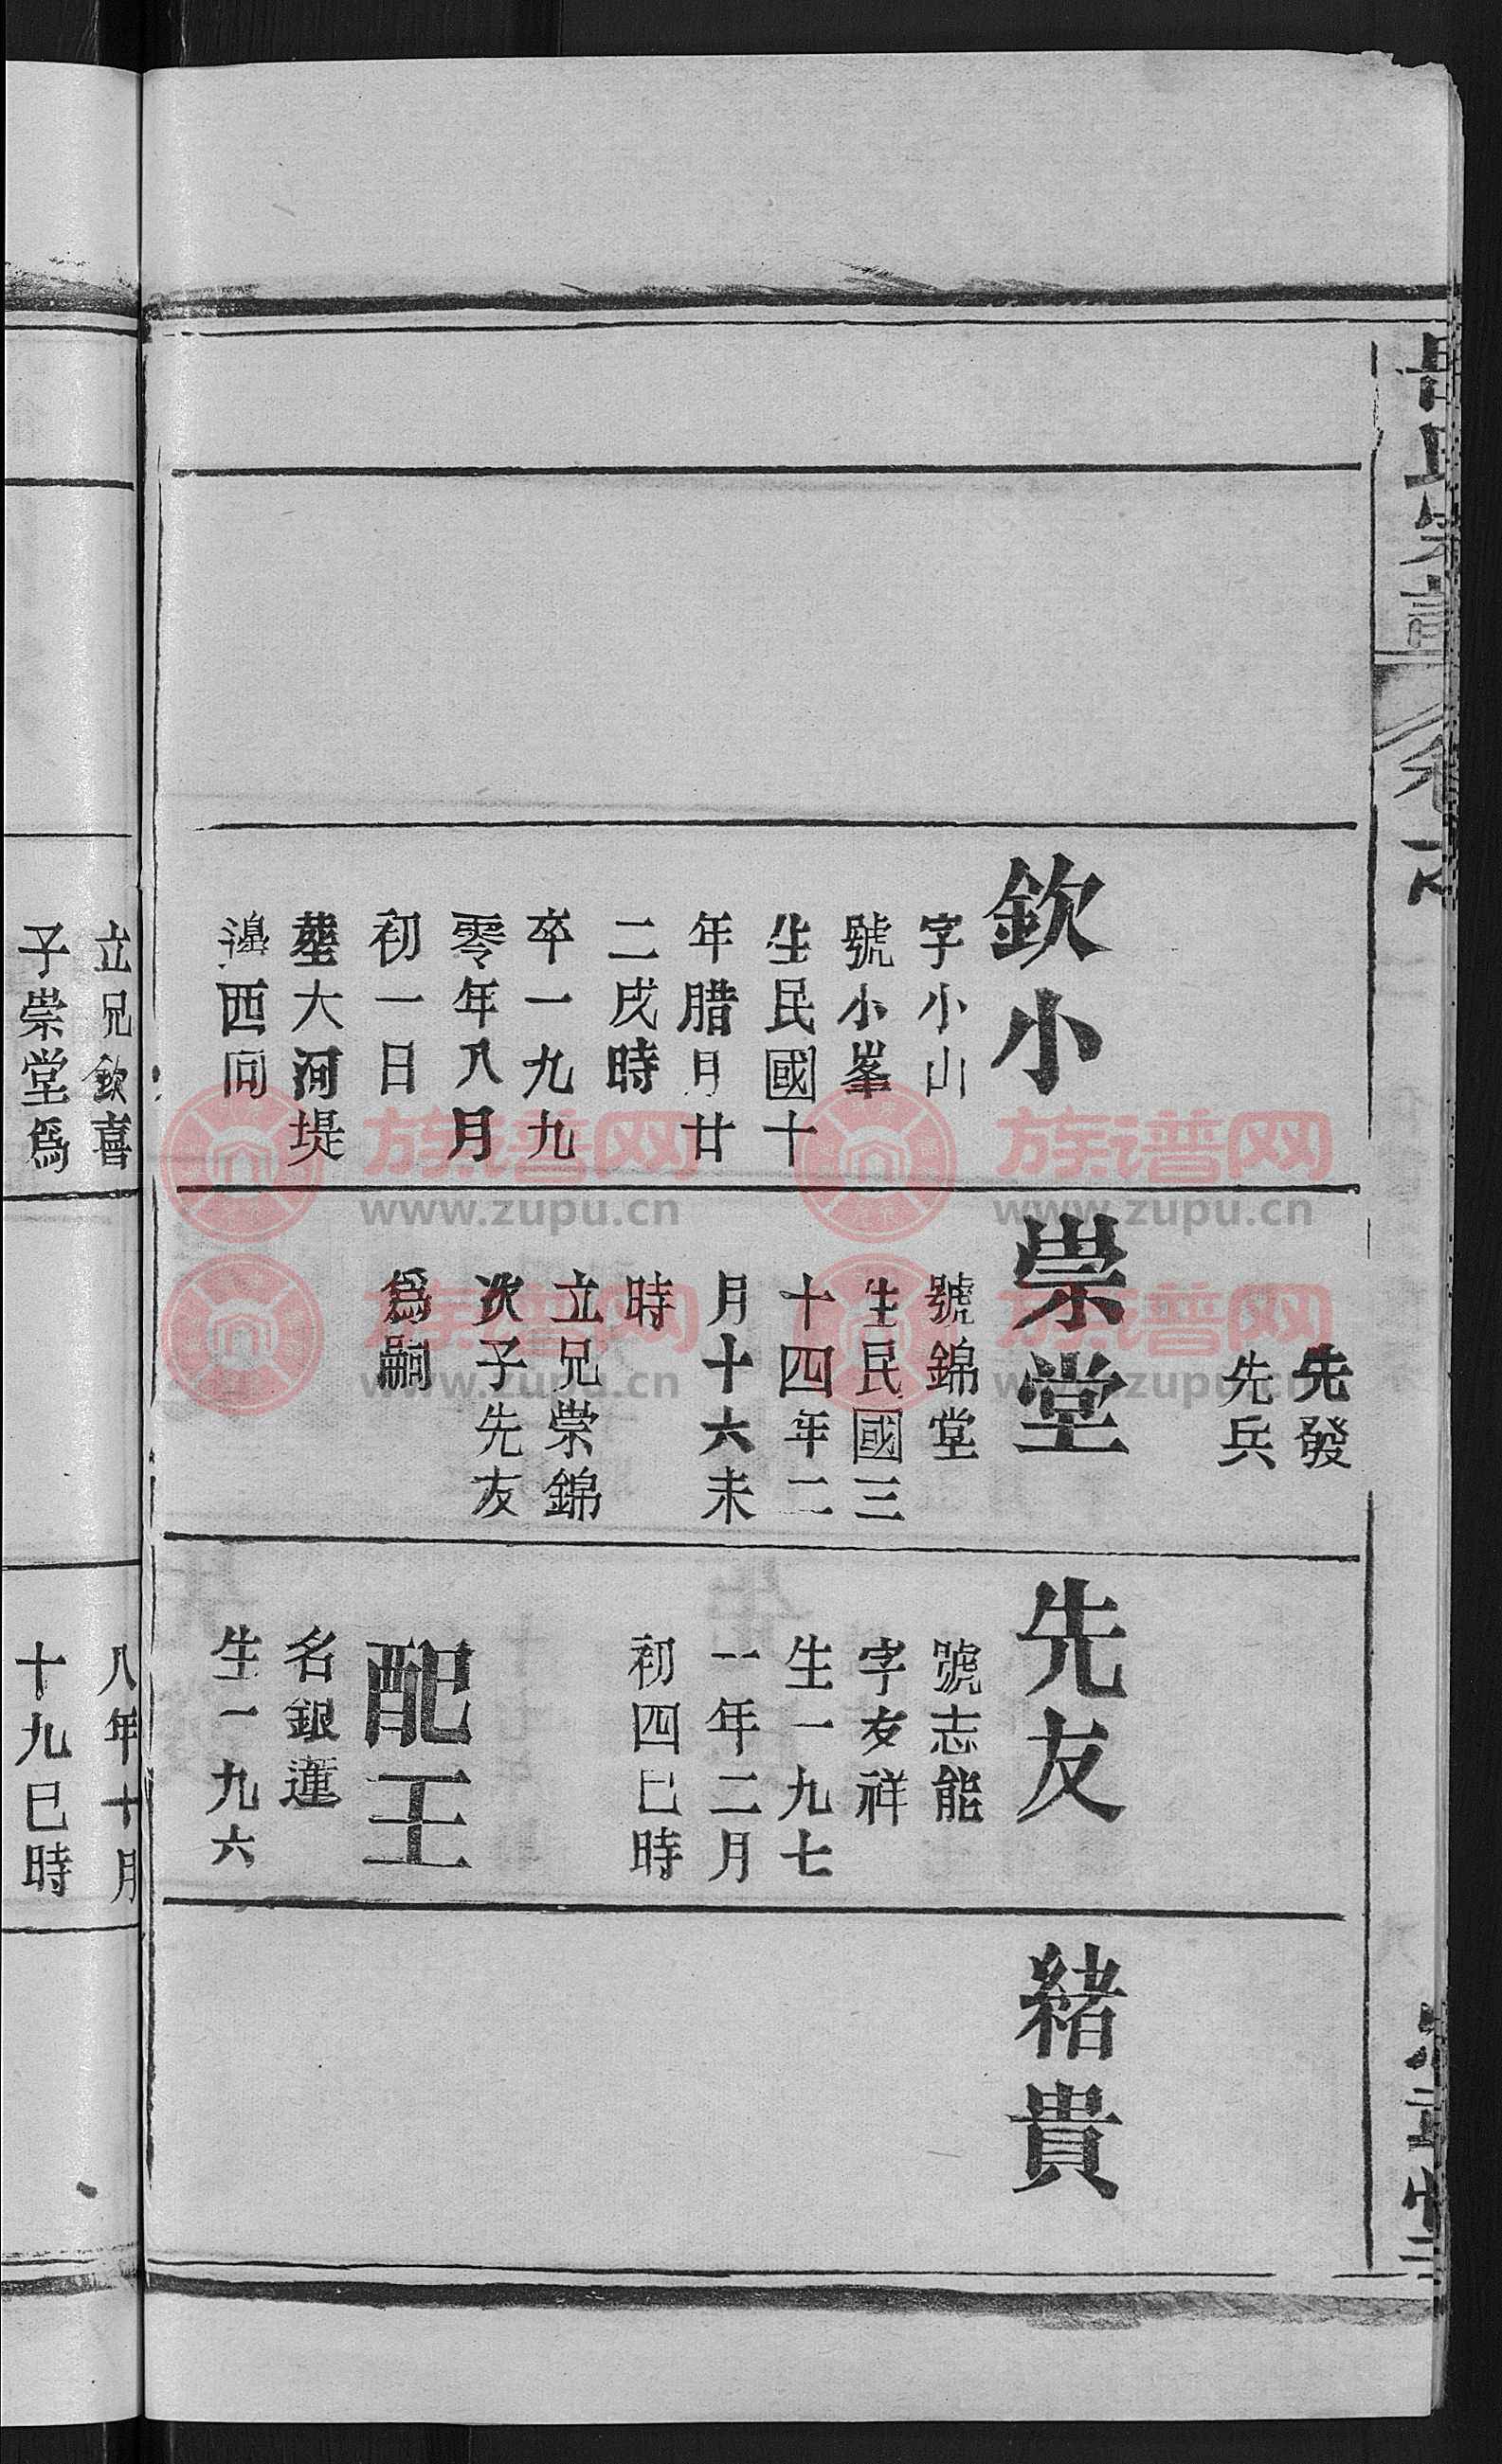 欽小
字小山
號小峯
生民國十
年腊月廿
二戌時
卒一九九
零年八月
初一日
塟大河堤
邉西向
立兄欽喜
子崇堂爲
先發
先兵
崇堂
號錦堂
生民國三
十四年二
月十六未
時
立兄崇錦
次子先友
爲嗣
先友
號志能
字友祥
生一九七
一年二月
初四巳時
配王
名銀蓮
生一九六
八年十月
十九巳時
緒貴
族谱网
www.zupu.cn
族谱网
www.zupu.cn
族谱网
www.zupu.cn
族谱网
www.zupu.cn